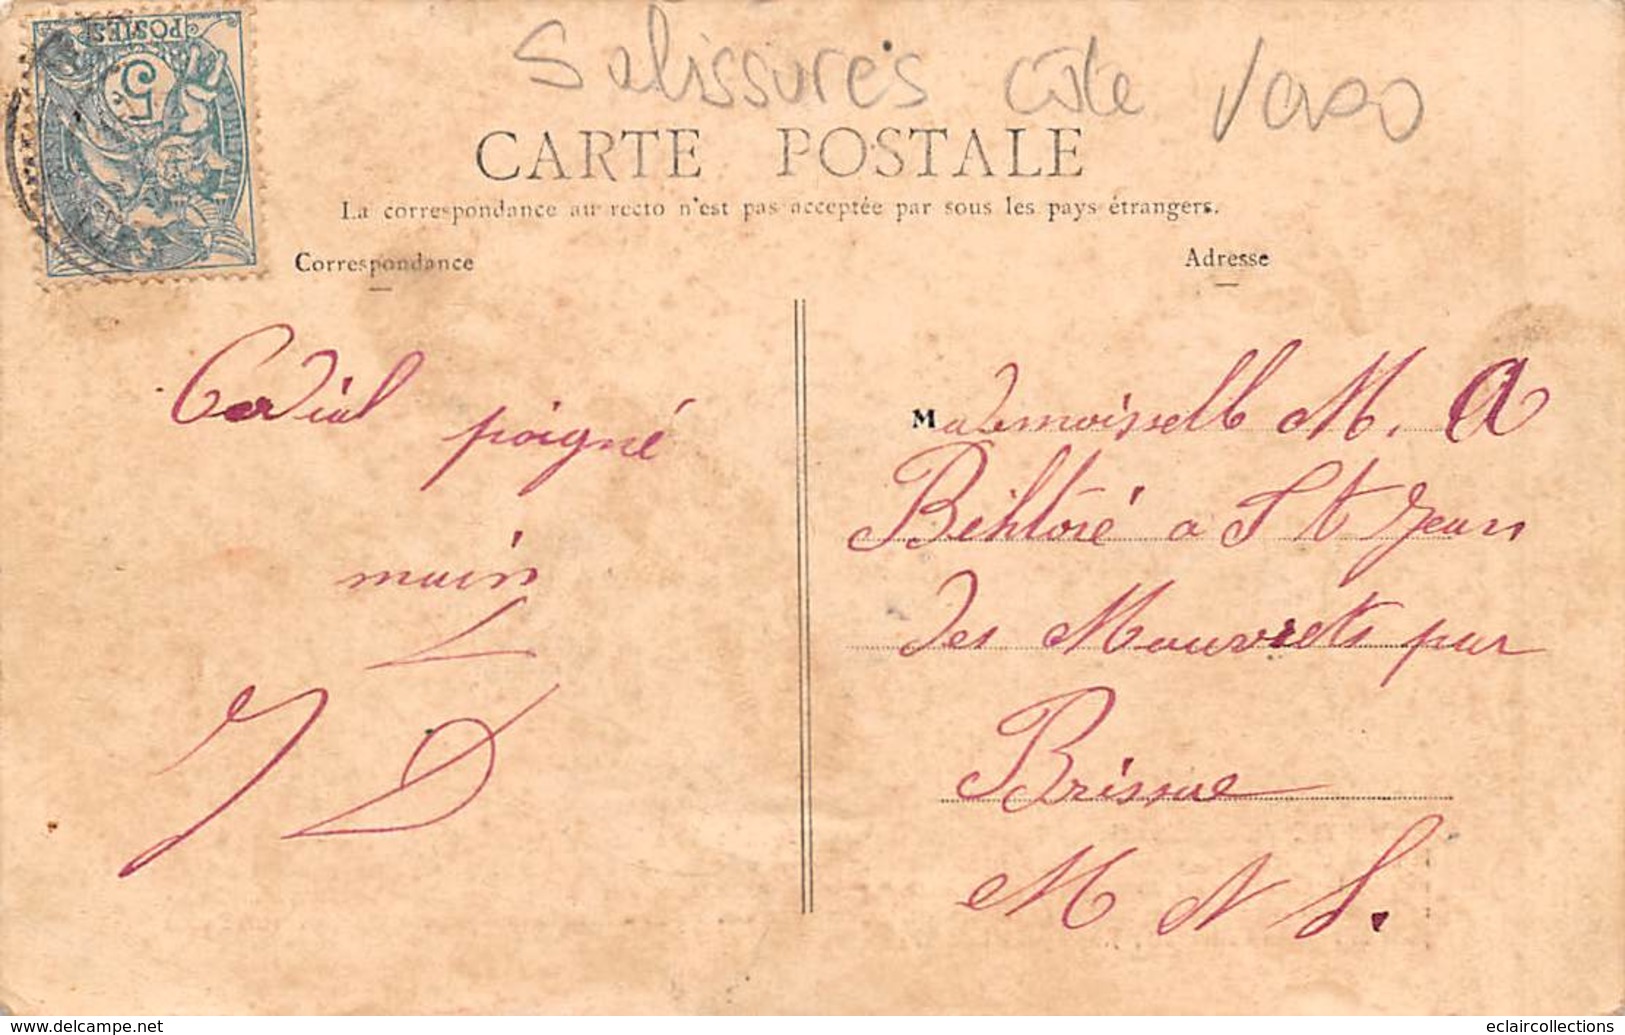 Salissures côté verso
POSTES
5
CARTE POSTALE
La correspondance au recto n'est pas acceptée par sous les pays étrangers.
Correspondance
Adresse
Cordial poigné
main
J D
Mademoiselle M. A
à St Jean
des Mauvrets par
Brissac
M
www.delcampe.net
eclaircollections